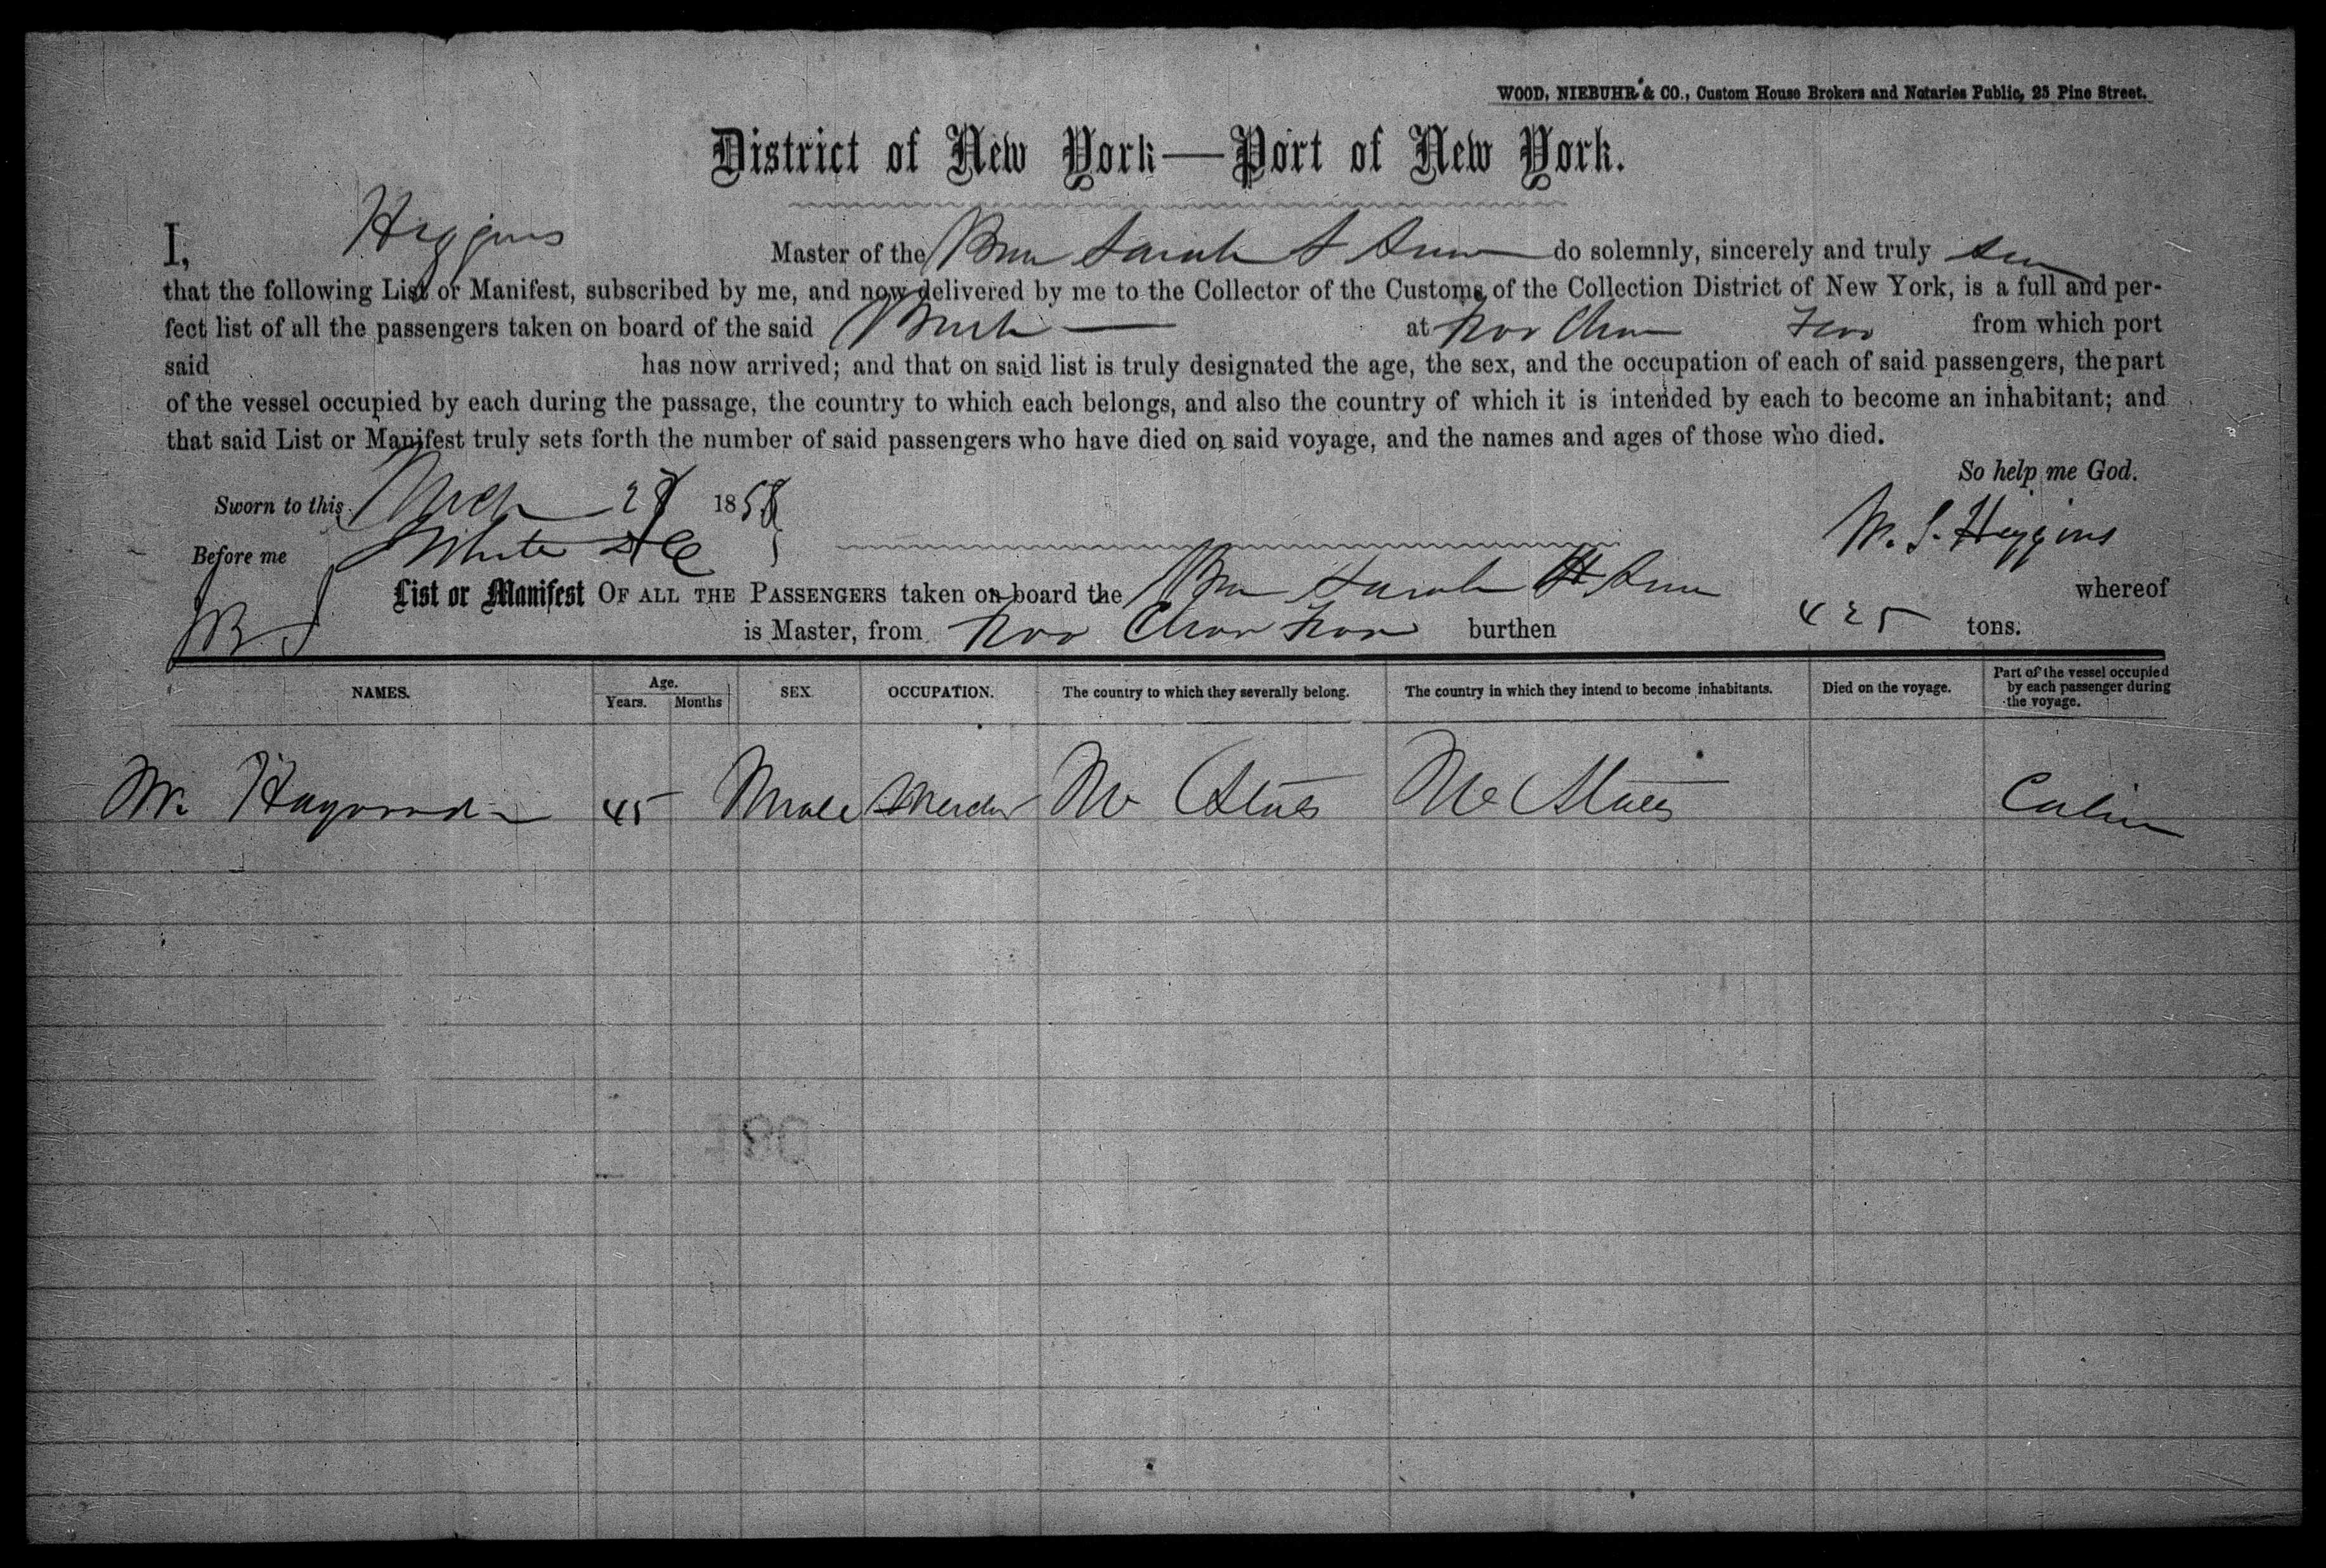 WOOD, NIEBUHR & CO., Custom House Brokers and Notaries Public, 25 Pine Street.
District of New York—Port of New York.
I, Higgins Master of the Sarah do solemnly, sincerely and truly
that the following List or Manifest, subscribed by me, and now delivered by me to the Collector of the Customs of the Collection District of New York, is a full and per-
fect list of all the passengers taken on board of the said at from which port
said has now arrived; and that on said list is truly designated the age, the sex, and the occupation of each of said passengers, the part
of the vessel occupied by each during the passage, the country to which each belongs, and also the country of which it is intended by each to become an inhabitant; and
that said List or Manifest truly sets forth the number of said passengers who have died on said voyage, and the names and ages of those who died.
So help me God.
Sworn to this 1858
Before me
M. S. Higgins
List or Manifest OF ALL THE PASSENGERS taken on board the Sarah whereof
is Master, from burthen 425 tons.
NAMES. Age. Years. Months SEX OCCUPATION. The country to which they severally belong. The country in which they intend to become inhabitants. Died on the voyage. Part of the vessel occupied by each passenger during the voyage.
45 Male States States Cabin